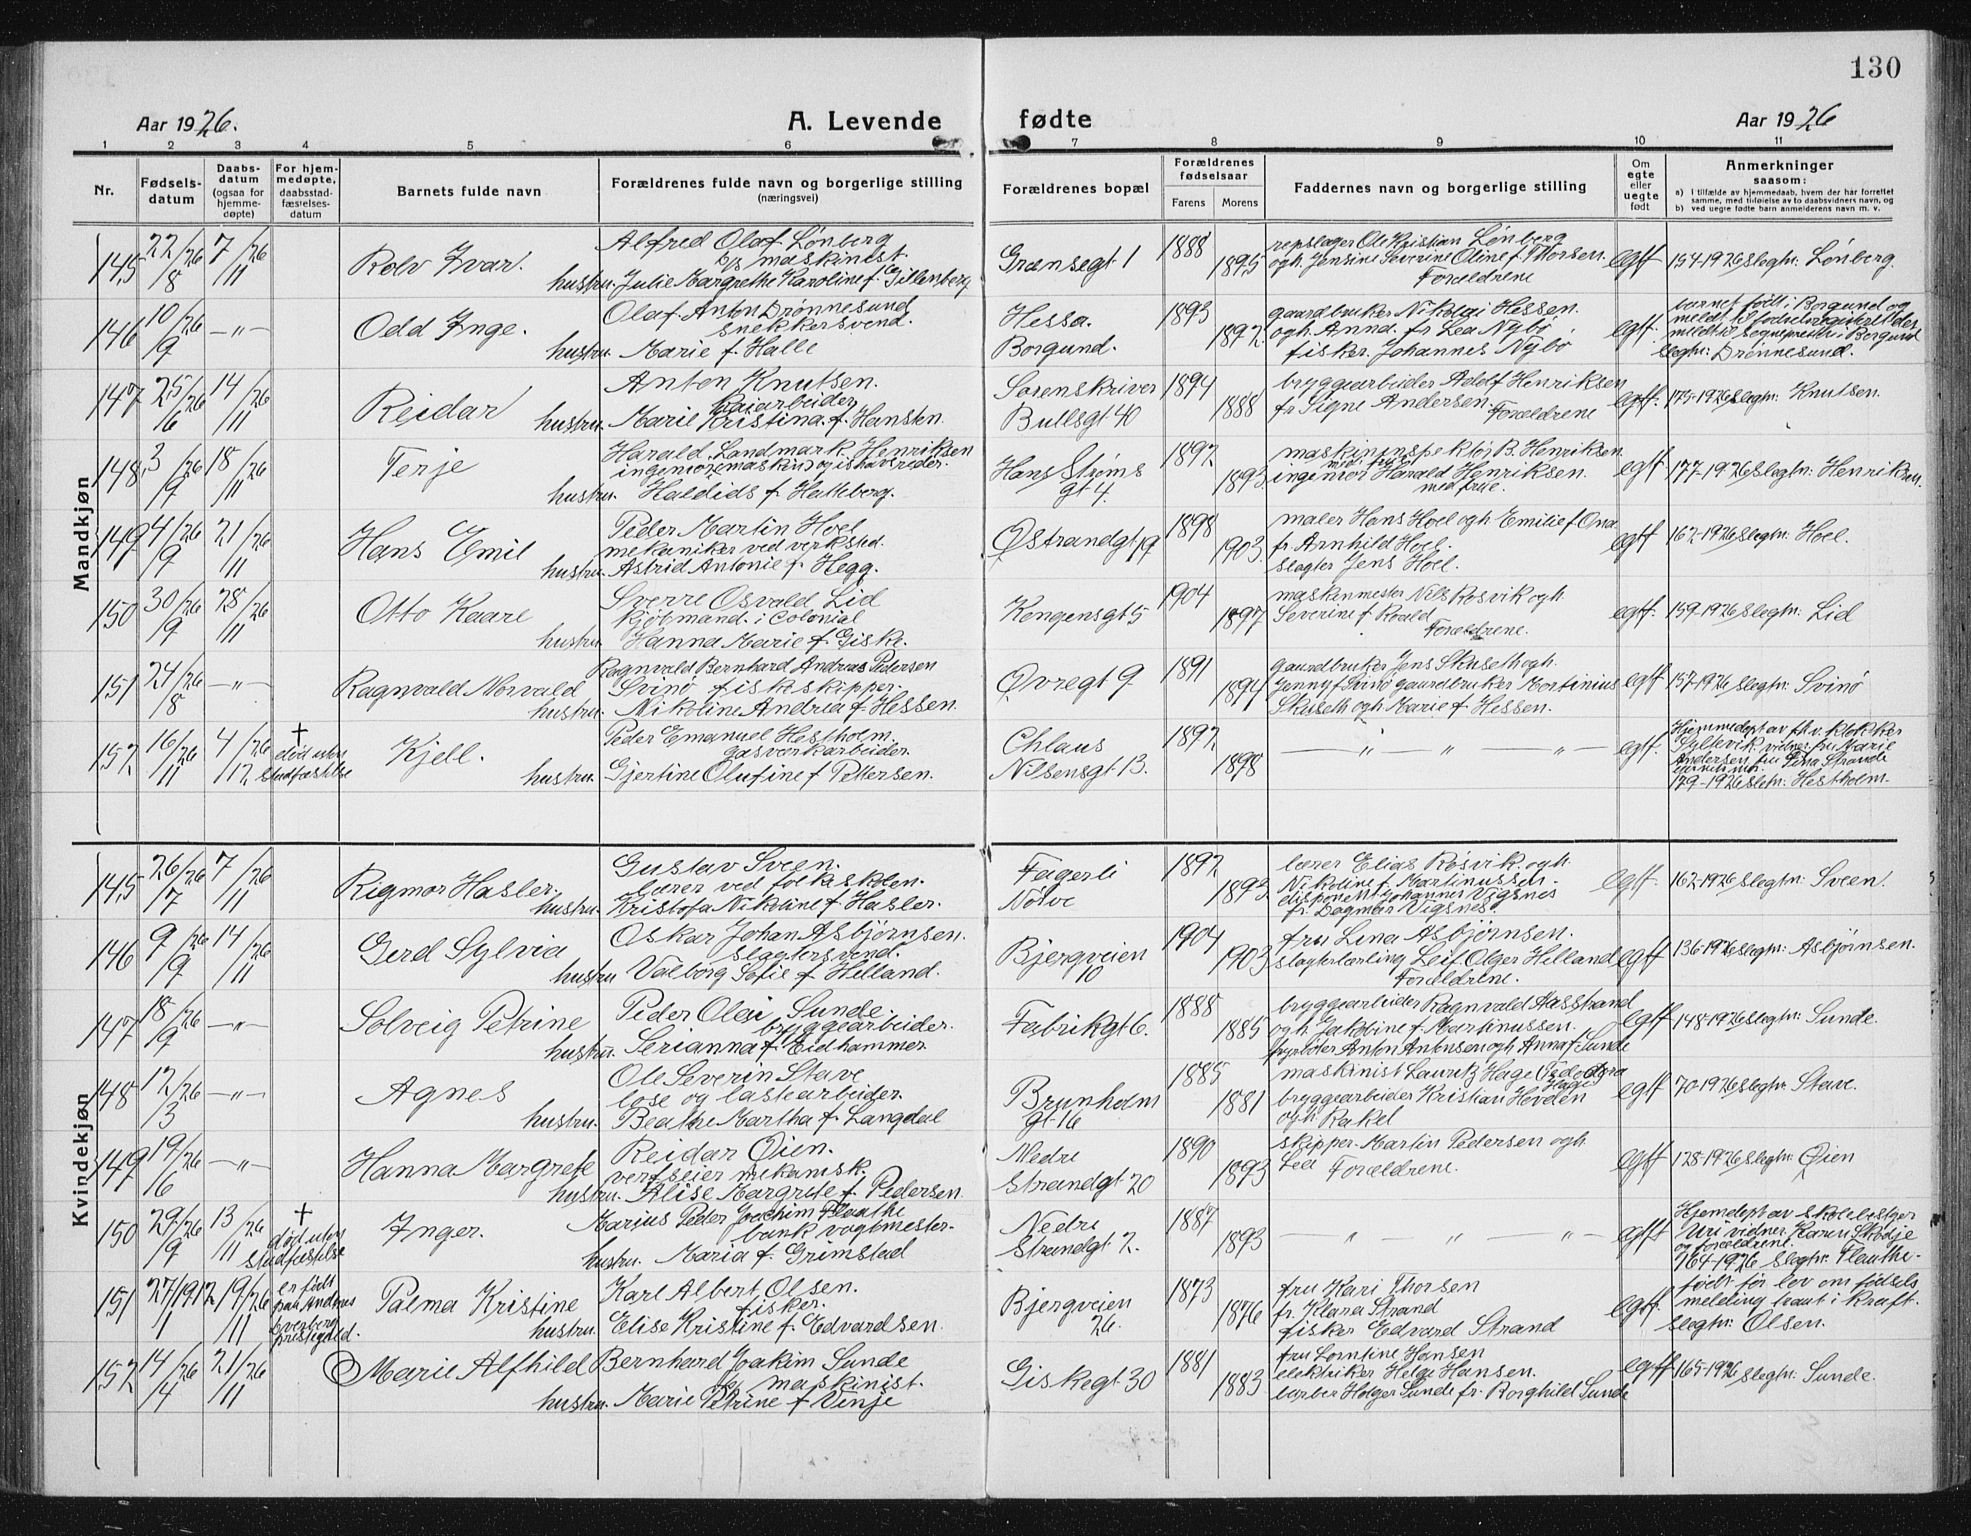 130
Aar 1926.
A. Levende fødte
Aar 1926
1 2 3 4 5 6 7 8 9 10 11
Nr.
Fødsels-
datum
Daabs-
datum
(ogsaa for
hjemme-
døpte)
For hjem-
medøpte,
daabsstad-
fæstelses-
datum
Barnets fulde navn
Forældrenes fulde navn og borgerlige stilling
(næringsvei)
Forældrenes bopæl
Forældrenes
fødselsaar
Farens Morens
Faddernes navn og borgerlige stilling
Om
egte
eller
uegte
født
Anmerkninger
saasom:
a) I tilfælde av hjemmedaab, hvem der har forrettet
samme, med tilføielse av to daabsvidners navn, og
b) ved uegte fødte barn anmelderens navn m. v.
Mandkjøn
145 22/8 26 7/11 26
Rolv Ivar.
Alfred Olaf Lønberg
maskinist.
hustru. Julie Margrethe Karoline f. Gillenberg
Grænsegt 1
1888 1895
repslager Ole Kristian Lønberg
ogh. Jensine Severine Oline f Thorsen.
Forældrene
egtf
154-1926 slegtn: Lønberg.
146 10/9 26 -"-
Odd Inge.
Olaf Anton Drønnesund
snekkersvend.
hustru. Marie f. Halle
Hessa.
Borgund.
1893 1892.
gaardbruker Nikolai Hessen.
ogh. Anna. fr Lea Nybø
fisker. Johannes Nybø
egtf.
barnet født i Borgund og
meldt til fødselsregistret der
meldt til sogneprest i Borgund
slegtn: Drønnesund.
147 25/6 26 14/11 26
Reidar
Anton Knutsen.
kaiarbeider
hustru. Marie Kristina f. Hansten.
Sorenskriver
Bullsgt 40
1894 1888
bryggearbeider Adolf Henriksen
fr Signe Andersen. Forældrene
egtf.
175-1926 slegtn: Knutsen.
148 3/9 26 18/11 26
Terje
Harald Landmark Henriksen
ingeniør maskin og ishavsreder.
hustru. Haldids f. Hatteberg.
Hans Strøms
gt 4.
1892. 1893
maskininspektør B. Henriksen
med frue
ingeniør Harald Henriksen.
med frue.
egtf
177-1926 slegtn: Henriksen.
149 4/9 26 21/11 26
Hans Emil
Peder Martin Hoel
mekaniker ved verksted.
hustru. Astrid Antonie f. Hegg.
Østrandgt 19
1898 1903.
maler Hans Hoel ogh Emilie f Ona
fr. Arnhild Hoel.
slagter Jens Hoel.
egtf
162-1926 slegtn: Hoel.
150 30/9 26 28/11 26
Otto Kaare
Sverre Osvald Lid
kjøbmand. i Colonial
hustru. Hanna Marie f. Giske.
Kongensgt 5
1904 1897
maskinmester Nils Rosvik ogh
Severine f. Roald
Forældrene.
egtf.
159-1926 slegtn: Lid
151 24/8 26 -"-
Ragnvald Norvald
Ragnvald Bernhard Andreas Pedersen
Svinø fiskeskipper.
hustru. Nikoline Andrea f. Hessen.
Øvregt 9
1891 1894
gaardbruker Jens Skuseth ogh.
Jenny f Svinø gaardbruker Mortinius
Skuseth ogh Marie f Hessen.
egtf
157-1926 slegtn: Svinø
152 16/11 26 4/12 26
+
død uten
stadfæstelse
Kjell.
Peder Emanuel Hestholm.
gasverkarbeider.
hustru. Gjertine Olufine f Pettersen.
Chlaus
Nilsensgt 13.
1892. 1898
— " — " — " —
egtf.
Hjemmedøpt av fh.v. klokker
Syltevik, vidner fru Marie
Andersen fru Tina Strande
179-1926 slegtn: Hestholm.
Kvindekjøn
145 26/7 26 7/11 26
Rigmor Hasler.
Gustav Sveen.
lærer ved folkeskolen.
hustru. Kristofa Nikoline f Hasler.
Fagerli
Nørve
1892. 1893.
lærer Elias Røsvik. ogh.
Nikoline f. Martinussen.
disponent Johannes Vigsnes
fr. Dagmar Vigsnes.
egtf.
162-1926 slegtn: Sveen.
146 9/9 26 14/11 26
Gerd Sylvia
Oskar Johan Asbjørnsen.
slagtersvend.
hustru Valborg Sofie f Helland.
Bjergveien
10
1904 1903
fru Lina Asbjørnsen.
slagterlærling Leif Olger Helland
Forældrene.
egtf
136-1926 slegtn: Asbjørnsen.
147 18/9 26 -"-
Solveig Petrine
Peder Olai Sunde.
bryggearbeider.
hustru. Serianna f. Eidhammer
Fabrikgt 6.
1888 1885
bryggearbeider Ragnvald Aasstrand
ogh Jakobine f. Martinussen.
fyrbøter Anton Antonsen ogh Anna f. Sunde
egtf
148-1926 slegtn: Sunde.
148 12/3 26 -"-
Agnes
Ole Severin Stave
lose og lastearbeider.
hustru. Beathe Martha f. Langdal
Brunholm
gt 16
1885 1881
maskinist Lauritz Hage Frededora
Hage
bryggearbeider Kristian Hovden
ogh Rakel
egtf
70-1926 slegtn: Stave.
149 19/6 26 -"-
Hanna Margrete
Reidar Øien.
verkseier mekanisk.
hustru. Alise Margrete f. Pedersen
Nedre
Strandgt 20
1890 1893
skipper Martin Pedersen ogh
Lea Forældrene.
egtf
128-1926 slegtn: Øien
150 29/9 26 13/11 26
+
død uten
stadfæstelse
Inger.
Marius Peder Joachim Flauthe
bank vogtmester.
hustru. Maria f. Grimstad
Nedre
Strandgt 2.
1887 1893
— " — " — " —
egtf
Hjemdøpt av skolebestyrer
Uri vidner Karen Skodje
og forældrene.
164-1926 slegtn: Flauthe.
151 27/1 1912 19/11 26
er født
paa Andenes
Palma Kristine
Karl Albert Olsen.
fisker.
hustru. Elise Kristine f. Edvardsen.
Bjergveien
26.
1873 1876
fru Kari Thorsen
fr. Klara Strand
fisker Edvard Strand
egtf.
født før lov om fødsels
melding traat i kraft.
slegtn: Olsen.
152 14/4 26 21/11 26
Marie Alfhild
Bernhard Joakim Sunde
maskinist.
hustru. Marie Petrine f Vinje
Giskegt 30
1881 1883
fru Lorntine Hansen
elektriker Helge Hansen.
barber Holger Sunde fr. Borghild Sunde
egtf
165-1926 slegtn: Sunde.